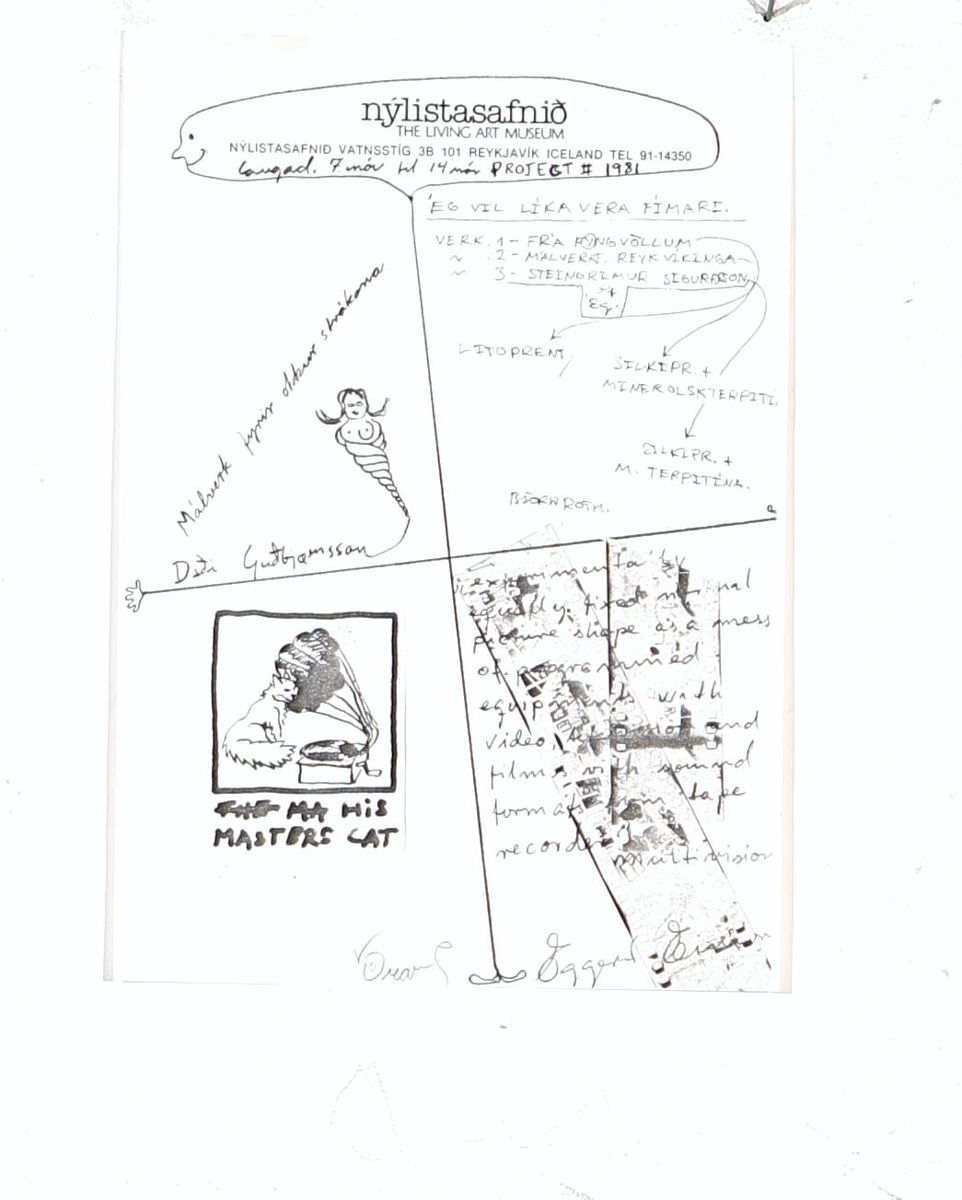 nýlistasafnið
THE LIVING ART MUSEUM
NÝLISTASAFNIÐ VATNSSTÍG 3B 101 REYKJAVÍK ICELAND TEL 91-14350
Laugad. 7 nóv til 14 nóv PROJECT # 1981
ÉG VIL LÍKA VERA FÍMARI.
VERK. 1 - FRÁ ÞINGVÖLLUM
~ 2 - MÁLVERK. REYKVÍKINGA
~ 3 - STEINGRÍMUR SIGURÐSSON
Ég.
LITOPRENT
SILKIPR. +
MINEROLSKTERPITI.
SILKIPR. +
M. TERPITÍNA.
BJÖRN ROTH.
Málverk fyrir okkur strákana
Daði Guðbjörnsson
THE MA HiS
MASTERS CAT
experimenta by
equally, fixed
picture shape as a mess
of programmed
equipments with
video, and
films with sound
formats from tape
recorders
multivision
Eggert Einarsson